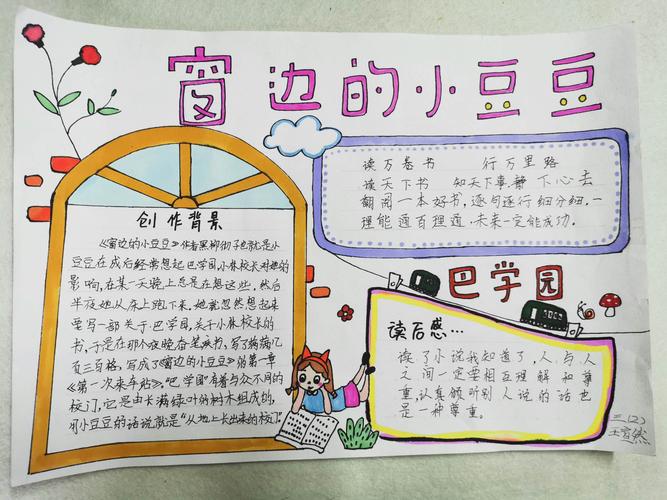 窗边的小豆豆
读万卷书 行万里路
读天下书 知天下事 静下心去
翻阅一本好书，逐句逐行细分细，一
理能通百理通，未来一定能成功。
创作背景
《窗边的小豆豆》作者黑柳彻子也就是小
豆豆在成后经常想起巴学园，小林校长对她的
影响，在某一天晚上总是在想这些，然后
半夜她从床上跑下来。她就忽然想起来
要写一部关于巴学园，关于小林校长的
书，于是在那个夜晚奋笔疾书，写了满满几
页三百格，写成了《窗边的小豆豆》的第一章
《第一次来车站》。"巴学园"有着与众不同的
校门，它是由长满绿叶的树木组成的，
用小豆豆的话说就是"从地上长出来的校门"
巴学园
读后感…
读了小说我知道了，人与人
之间一定要相互理解和尊
重，认真倾听别人说的话也
是一种尊重。
三(2)
王宣然